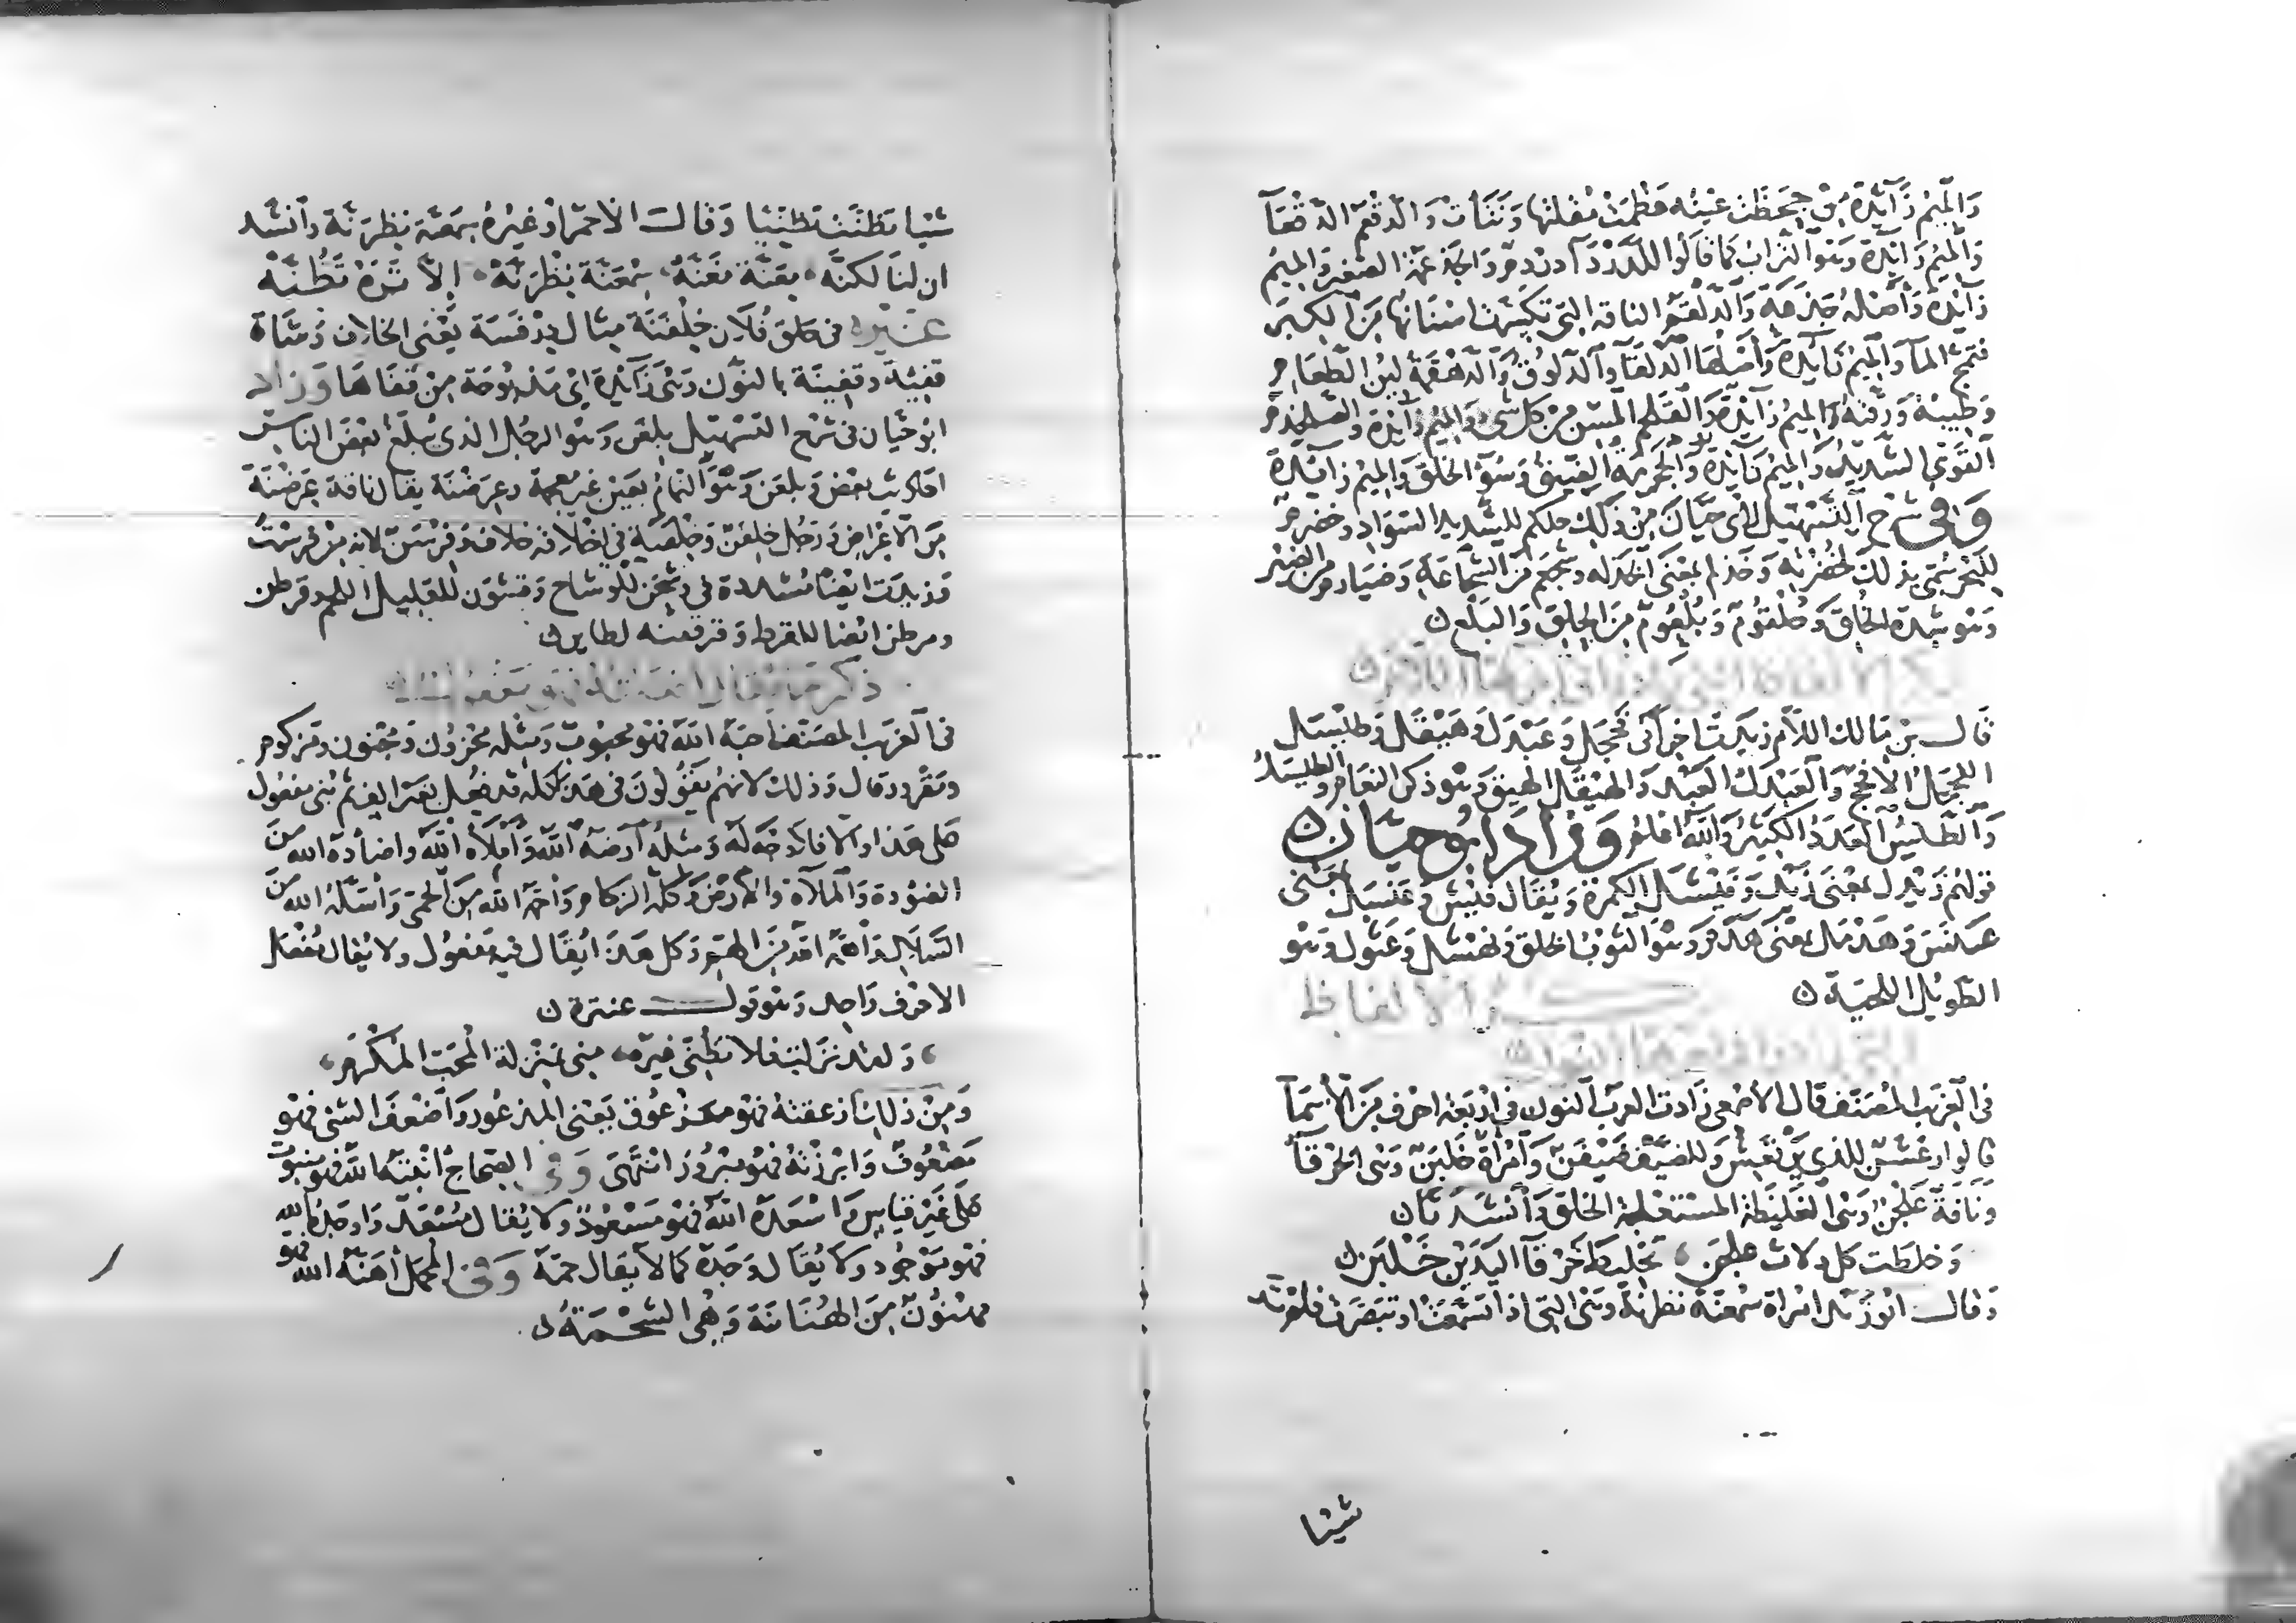 والميم زائدة من جحظت عينه عظمت مقلتها ونتأت والدقعم الدقعا
والميم زائدة وهو التراب كما قالوا للدرداء دردم والجذعمة الصغير والميم
زائدة وأصله جذعة والدلقم الناقة التي تكسرت اسنانها من الكبر
فتمج الما والميم زائدة وأصلها الدلقا والدلوق والدهقمة لين الطعام
وطيبه ورقته والميم زائدة والقلحم المسن من كل شي والميم زائدة والصلخدم
القوي الشديد والميم زائدة والحجرمة الضيق وسؤ الخلق والميم زائدة
وفي شرح التسهيل لأبي حيان من ذلك حلكم للشديد السواد وخضرم
للبحر سمي بذلك لخضرته وخذلم بمعنى الخدلة وشجعم من الشجاعة وضبارم من الضبر
وهو شدة الخلق وحلقوم وبلعوم من الحلق والبلع ن
ذكر الالفاظ التي زيد في آخرها اللام ن
قال بن مالك اللام زيدت اخرا في فحجل وعبدل وهيقل وطيسل
الفحجل الأفحج والعبدل العبد والهيقل الهيق وهو ذكر النعام والطيسل
والطيس العدد الكبير والله اعلم وزاد ابو حيان ن
قولهم زيدل بمعنى زيد وفيشل الكمرة ويقال فيش وعنسل بمعنى
عنس وهدمل بمعنى هدم وهو الثوب الخلق ونهشل وعثول وهو
الطويل اللحية ن ذكر الالفاظ
التي زيدت في آخرها النون ن
في الغريب المصنف قال الأصمعي زادت العرب النون في اربعة احرف من الأسما
قالوا رعشن للذي يرتعش وللضيف ضيفن وامرأة خلبن وهي الخرقا
وناقة علجن وهي الغليظة المستعلجة الخلق وأنشدنا ن
وخلطت كل دلاث علجن ، تخليط خرقا اليدين خلبن ن
وقال ابو زيد امراة سمعنة نظرنة وهي التي اذا تسمعت او تبصرت فلم تر
شيئا
شيئا تظننت تظنيا وقال الاحمر او غيره سمعنة نظرنة وأنشد
ان لنا لكنه ، معنة مفنه ، سمعنة نظرنه ، إلا تره تظنه
غيره في خلق فلان خلفنة مثال درفسة يعني الخلاف وشاة
قفية وقفينة بالنون وهي زائدة اي مذبوحة من قفاها وزاد
ابو حيان في شرح التسهيل بلغن وهو الرجل الذي يبلغ بعض الناس
احاديث بعض وبلعن وهو النمام بعين غير معجمة وعرضنة يقال ناقة عرضنة
من الاعراض ورجل خلفن وخلفنة في اخلاقه خلاف وفرسن لانه من فرست
وزيدت ايضا مشددة في وشحن للوشاح وقشون للقليل اللحم وقرطن
ومرطن ايضا للقرط وقرقفنة لطاير ن
ذكر ما يقال افعله فهو مفعول ن
في الغريب المصنف احبه الله فهو محبوب ومثله محزون ومجنون ومزكوم
ومقرور قال وذلك لانهم يقولون في هذا كله قد فعل بغير الف ثم بني مفعول
على هذا والا فلا وجه له ومثله آرضه الله وأملأه الله واضأده الله من
الضودة والملأة والأرض وكله الزكام وأحمه الله من الحمى وأسله الله من
السلال وأهمه الله من الهم وكل هذا يقال فيه مفعول ولا يقال مفعل
الا حرف واحد وهو قول عنترة ن
، ولقد نزلت فلا تظني غيره ، مني بمنزلة المحب المكرم ،
ومن ذلك أزعقته فهو مزعوق يعني المذعور وأضعف الشي فهو
مضعوف وابرزته فهو مبروز انتهى وفي الصحاح انبته الله فهو منبوت
على غير قياس واسعده الله فهو مسعود ولا يقال مسعد واوجده الله
فهو موجود ولا يقال وجده كما لا يقال حمه وفي المجمل أهنه الله فهو
مهنون من الهنانة وهي الشحمة ن